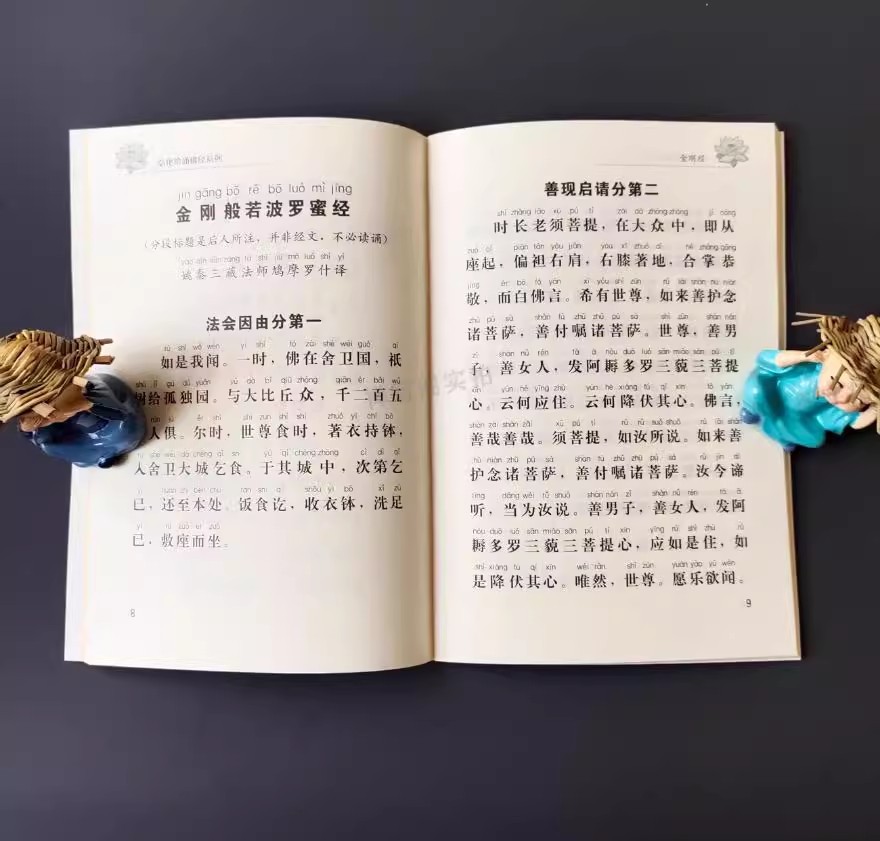 jīn gāng bō rě bō luó mì jīng
金刚般若波罗蜜经
(分段标题是后人所注，并非经文，不必读诵)
yáo qín sān zàng fǎ shī jiū mó luó shí yì
姚秦三藏法师鸠摩罗什译
法会因由分第一
rú shì wǒ wén yì shí fó zài shè wèi guó qí
如是我闻。一时，佛在舍卫国，祇
shù jǐ gū dú yuán yǔ dà bǐ qiū zhòng qiān èr bǎi wǔ
树给孤独园。与大比丘众，千二百五
rén jù ěr shí shì zūn shí shí zhuó yī chí bō
人俱。尔时，世尊食时，著衣持钵，
rù shè wèi dà chéng qǐ shí yú qí chéng zhōng cì dì qǐ
入舍卫大城乞食。于其城中，次第乞
yǐ huán zhì běn chù fàn shí qì shōu yī bō xǐ zú
已，还至本处。饭食讫，收衣钵，洗足
yǐ fū zuò ér zuò
已，敷座而坐。
8
金刚经
善现启请分第二
shí zhǎng lǎo xū pú tí zài dà zhòng zhōng jí cóng
时长老须菩提，在大众中，即从
zuò qǐ piān tǎn yòu jiān yòu xī zhuó dì hé zhǎng gōng
座起，偏袒右肩，右膝著地，合掌恭
jìng ér bó fó yán xī yǒu shì zūn rú lái shàn hù niàn
敬，而白佛言。希有世尊，如来善护念
zhū pú sà shàn fù zhǔ zhū pú sà shì zūn shàn nán
诸菩萨，善付嘱诸菩萨。世尊，善男
zǐ shàn nǚ rén fā ā nòu duō luó sān miǎo sān pú tí
子，善女人，发阿耨多罗三藐三菩提
xīn yún hé yīng zhù yún hé xiáng fú qí xīn fó yán
心，云何应住。云何降伏其心。佛言，
shàn zāi shàn zāi xū pú tí rú rǔ suǒ shuō rú lái shàn
善哉善哉。须菩提，如汝所说。如来善
hù niàn zhū pú sà shàn fù zhǔ zhū pú sà rǔ jīn dì
护念诸菩萨，善付嘱诸菩萨。汝今谛
tīng dāng wèi rǔ shuō shàn nán zǐ shàn nǚ rén fā ā
听，当为汝说。善男子，善女人，发阿
nòu duō luó sān miǎo sān pú tí xīn yīng rú shì zhù rú
耨多罗三藐三菩提心，应如是住，如
shì xiáng fú qí xīn wéi rán shì zūn yuàn yào yù wén
是降伏其心。唯然，世尊。愿乐欲闻。
9